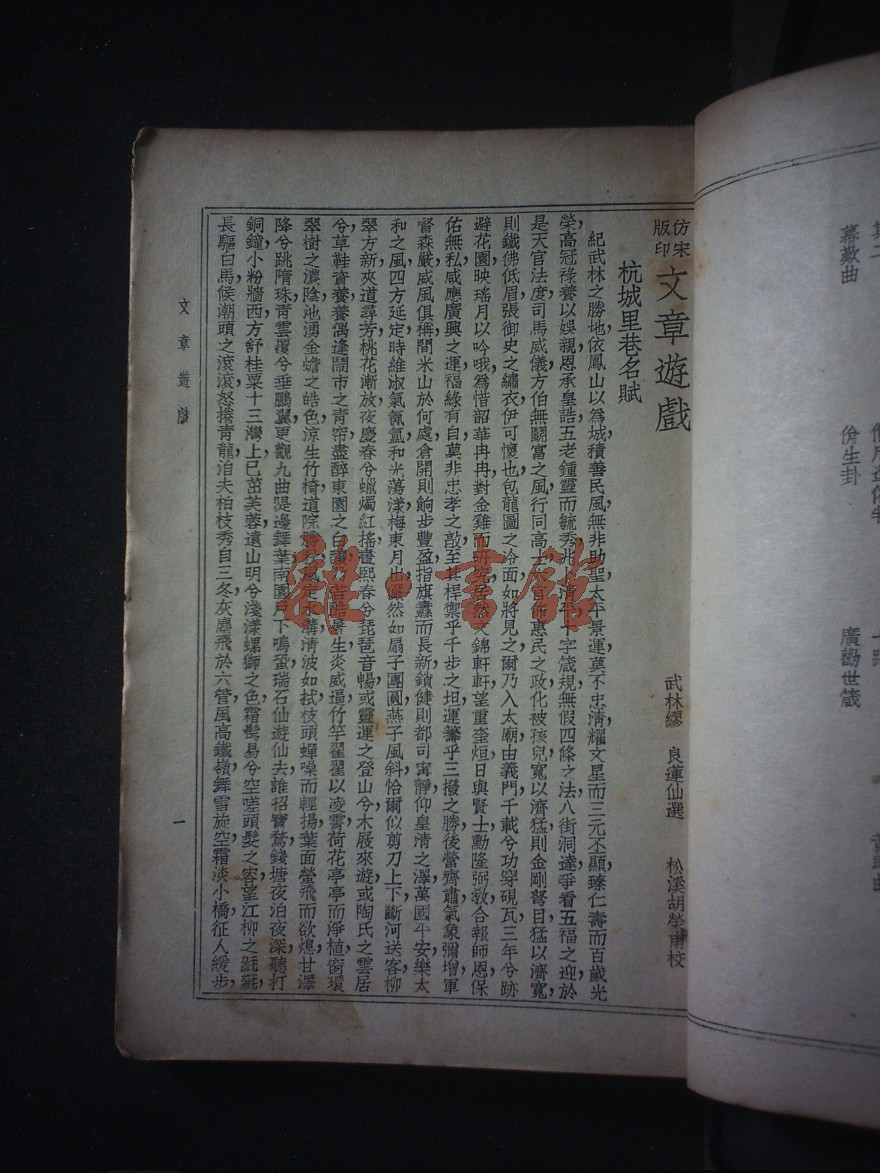 仿宋版印 文章遊戲
武林繆 良蓮仙選 松溪胡榮甫校
杭城里巷名賦
紀武林之勝地依鳳山以為城積善民風無非助聖太平景運莫不忠清耀文星而三元丕顯臻仁壽而百歲光
榮高冠祿養以娛親恩承皇誥五老鍾靈而毓秀兆十字箴規無假四條之法八街洞達爭看五福之迎於
是天官法度司馬威儀方伯無關富之風行同高士惠民之政化被孩兒寬以濟猛則金剛弩目猛以濟寬
則鐵佛低眉張御史之繡衣伊可懷也包龍圖之冷面如將見之爾乃入太廟由義門千載兮功穿硯瓦三年兮跡
避花園映瑤月以吟哦為惜韶華冉冉對金雞而文錦軒軒望重奎垣日與賢士勳隆弼教合報師恩保
佑無私感應廣興之運福綠有自莫非忠孝之敲至其桿禦乎千步之坦運籌乎三撥之勝後營齊肅氣象彌增軍
督森嚴威風俱稱間米山於何處倉開則餉步豐盈指旗纛而長新鎖健則都司寗靜仰皇清之澤萬國平安樂太
和之風四方延定時維淑氣氤氳和光蕩漾梅東月出儼然如扇子團圓燕子風斜恰爾似剪刀上下斷河送客柳
翠方新夾道尋芳桃花漸放夜慶春兮蠟燭紅搖晝熙春兮琵琶音暢或靈運之登山兮木屐來遊或陶氏之雲居
兮草鞋資養養偶逢鬧市之青帘盡醉東園之白釀乃若酷暑生炎威逼竹竿翟翟以凌霄荷花亭亭而淨植窗環
翠樹之濃陰池湧金蟾之皓色涼生竹椅道院溝清波如拭枝頭蟬噪而輕揚葉面螢飛而欲熄甘澤
降兮跳隋珠青雲覆兮垂鵬翼更觀九曲隄邊舞葉南園戶下鳴蛩瑞石仙遊仙去誰招寶騖錢塘夜泊夜深聽打
銅鐘小粉牆西方舒桂粟十三灣上已茁芙蓉遠山明兮淺漾螺獅之色霜鬢易兮空嗟頭髮之容望江柳之毿毿
長驅白馬候潮頭之滾滾怒捲青龍洎夫柏枝秀自三冬灰塵飛於六管風高鐵嶺舞雪旋空霜淡小橋征人緩步
文章遊戲
一
雜·書館
其二
蕣歎曲
份生卦
廣勸世箴